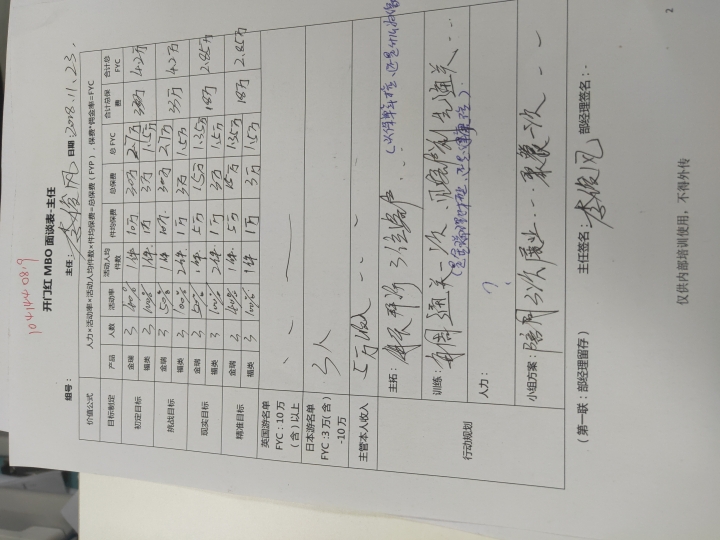 1041440819
开门红 MBO 面谈表-主任
组号： 主任：李俊风 日期 2018.11.23.
价值公式 人力×活动率×活动人均件数×件均保费=总保费（FYP），保费*佣金率=FYC
目标制定 产品 人数 活动率 活动人均件数 件均保费 总保费 总 FYC 合计总保费 合计总 FYC
初定目标 金瑞 3 100% 1件 10万 30万 2.7万 33万 4.2万
福类 3 100% 1件 1万 3万 1.5万
挑战目标 金瑞 3 50% 1件 10万 30万 2.7万 33万 4.2万
福类 3 100% 2件 1万 3万 1.5万
现实目标 金瑞 3 50% 1件 5万 15万 1.35万 18万 2.85万
福类 3 100% 2件 1万 3万 1.5万
精准目标 金瑞 3 100% 1件 5万 15万 1.35万 18万 2.85万
福类 3 100% 1件 1万 3万 1.5万
英国游名单 FYC：10万（含）以上
日本游名单 FYC :3 万(含)-10万 3人
主管本人收入 5万收入
行动规划 主拓： 每天拜访3位客户
训练： 每周通关一次
人力： ?
小组方案：
主任签名：李俊风 部经理签名：
（第一联：部经理留存）
仅供内部培训使用，不得外传
2